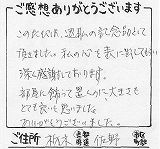 ご感想ありがとうございます
このたびは、退職の記念品として
頂きました。私の心を表に刻してもらい
深く感謝しております。
部屋に飾って置くのに大きさも
とても良いと思いました。
ありがとうございました。
ご住所 栃木 都道府県 佐野 市区町村